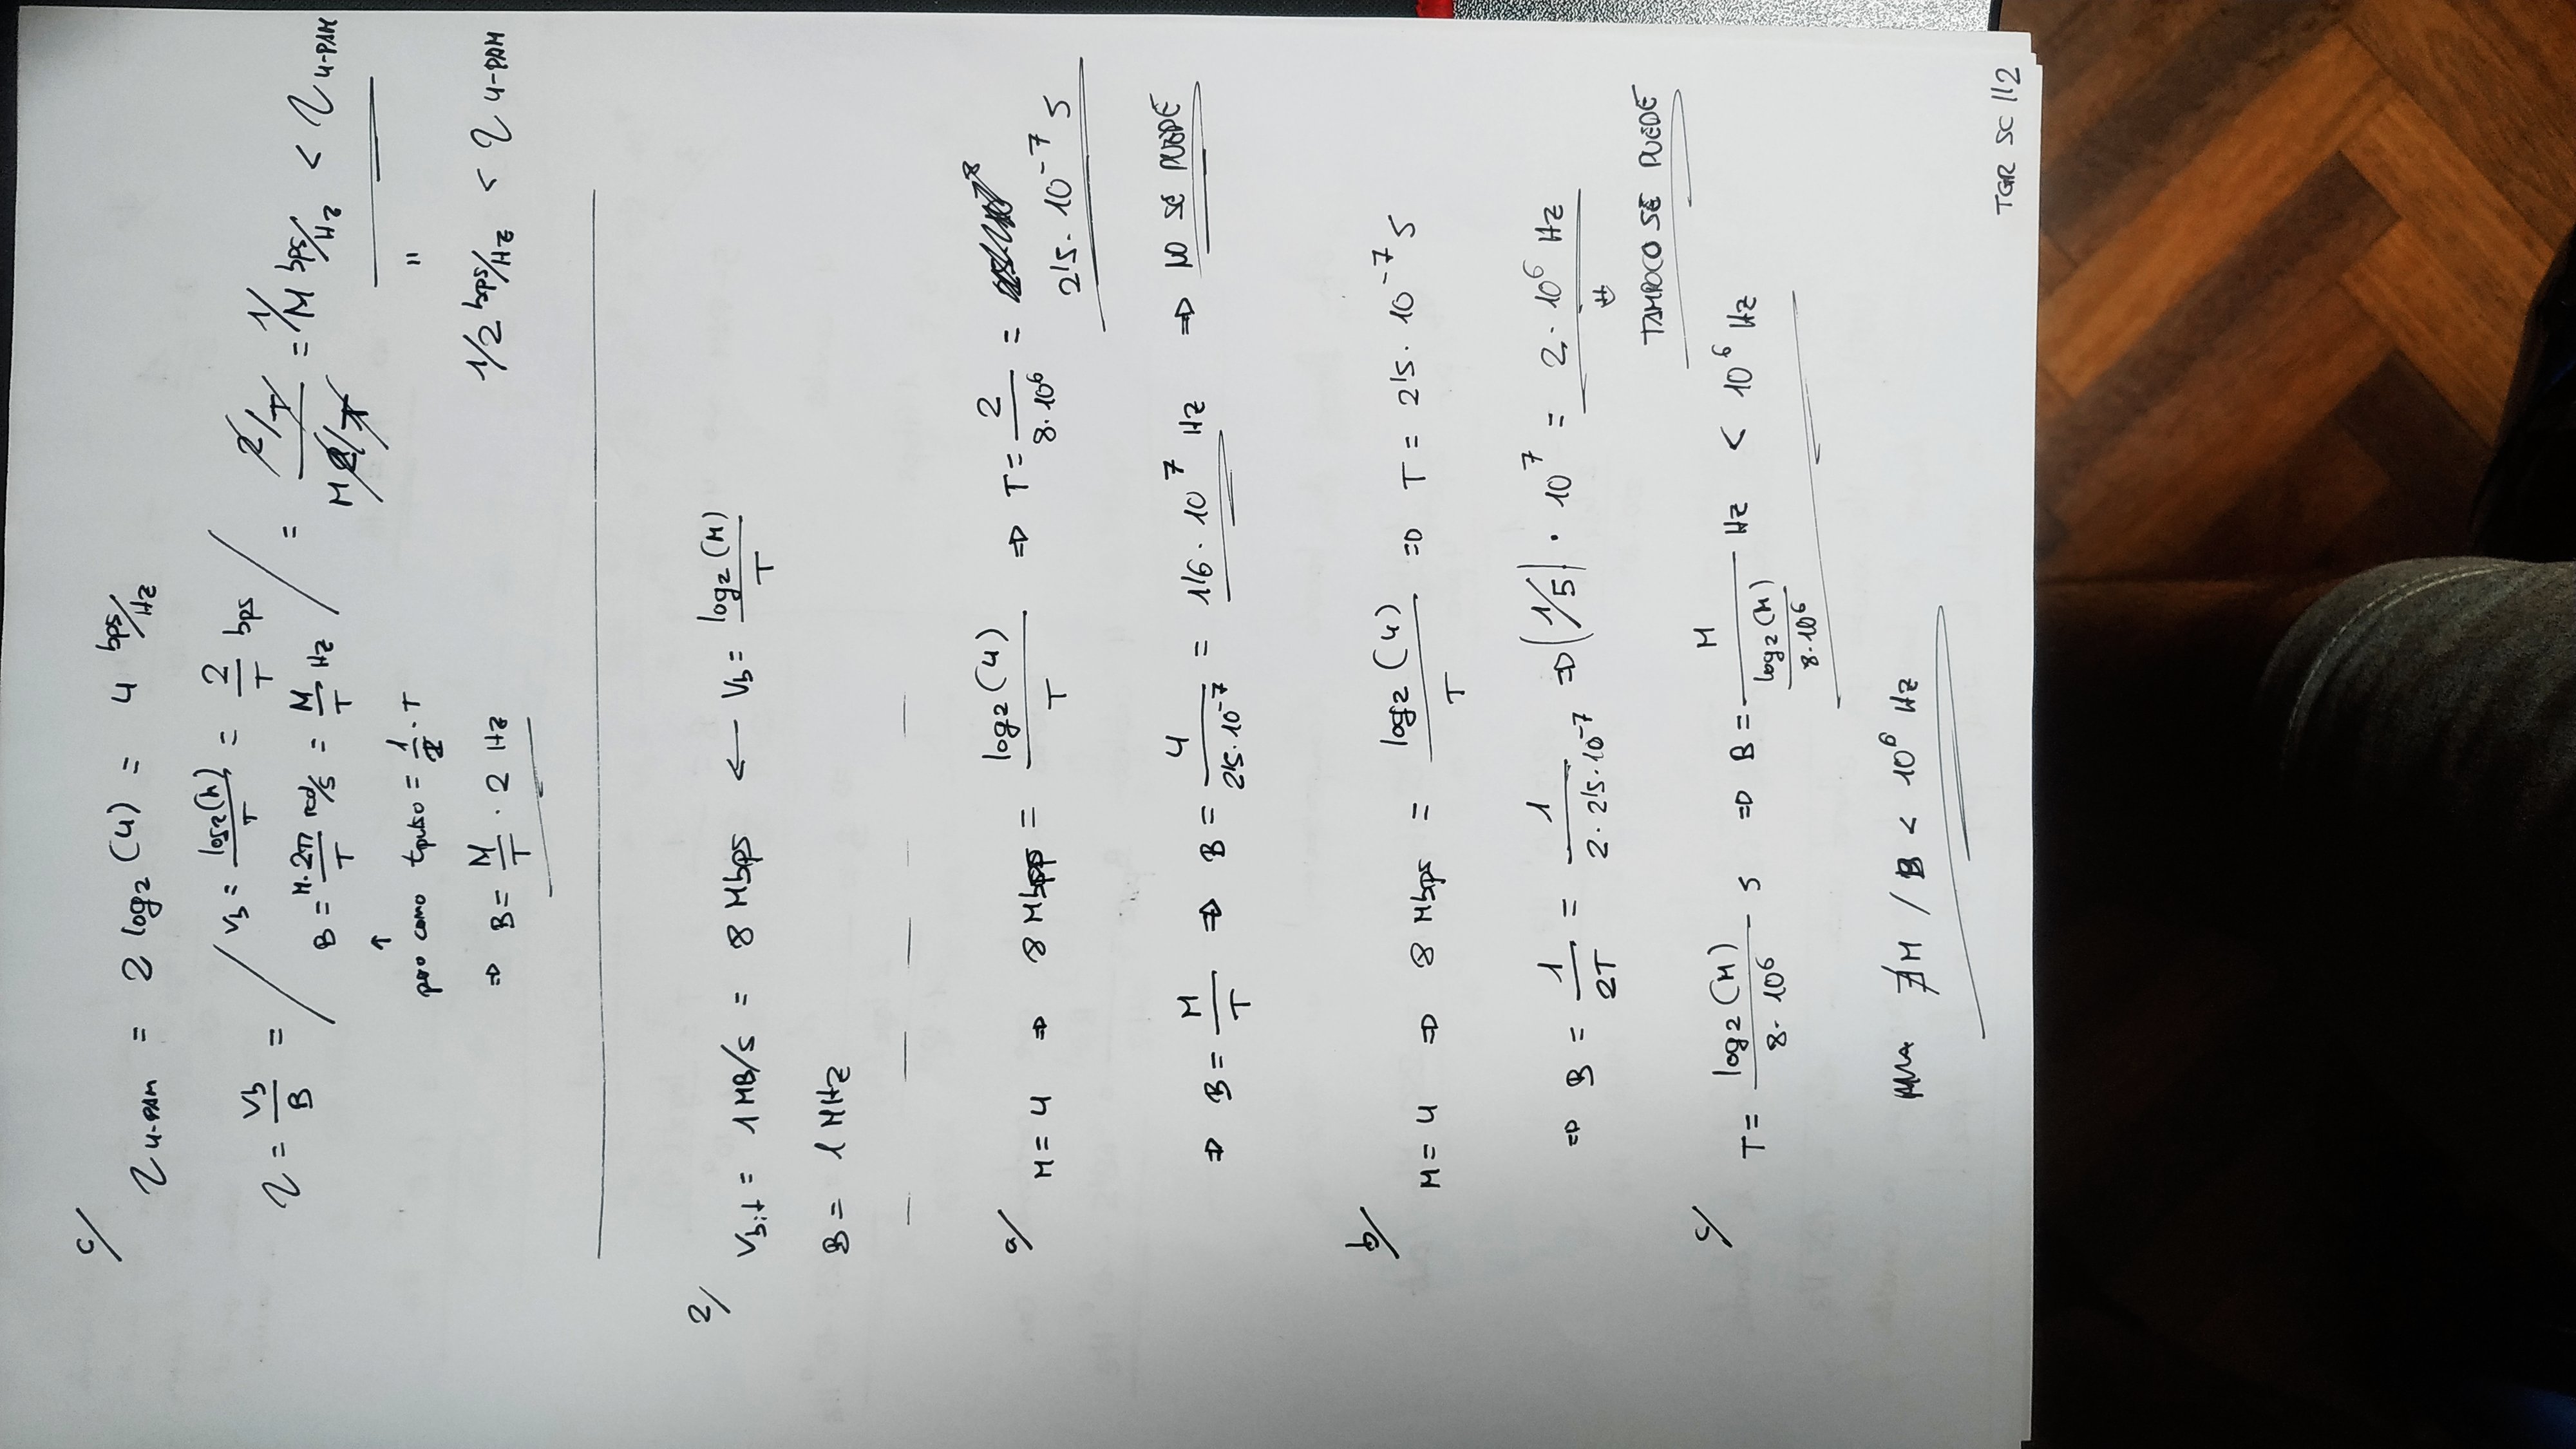 c/
η 4-PAM = 2 log2 (4) = 4 bps/Hz
η = Vb/B = / Vb = log2(M)/T = 2/T bps / = 2/T / M2/T = 1/M bps/Hz < η 4-PAM
B = M·2π/T rad/s = M/T Hz
↑
pero como tpulso = 1/2 · T
⇒ B = M/T · 2 Hz
"
1/2 bps/Hz < η 4-PAM
2/
Vbit = 1 MB/s = 8 Mbps ← Vb = log2 (M)/T
B = 1 MHz
a/
M = 4 ⇒ 8 Mbpp = log2 (4)/T ⇒ T = 2/8·10^6 =
2'5·10^-7 s
⇒ B = M/T ⇒ B = 4/2'5·10^-7 = 1'6·10^7 Hz ⇒ NO SE PUEDE
b/
M = 4 ⇒ 8 Mbps = log2 (4)/T ⇒ T = 2'5·10^-7 s
⇒ B = 1/2T = 1/2·2'5·10^-7 ⇒ (1/5)·10^7 = 2·10^6 Hz
⇓
TAMPOCO SE PUEDE
c/
T = log2 (M)/8·10^6 s ⇒ B = M/(log2 (M)/8·10^6) Hz < 10^6 Hz
∄M / B < 10^6 Hz
TGR SC 112